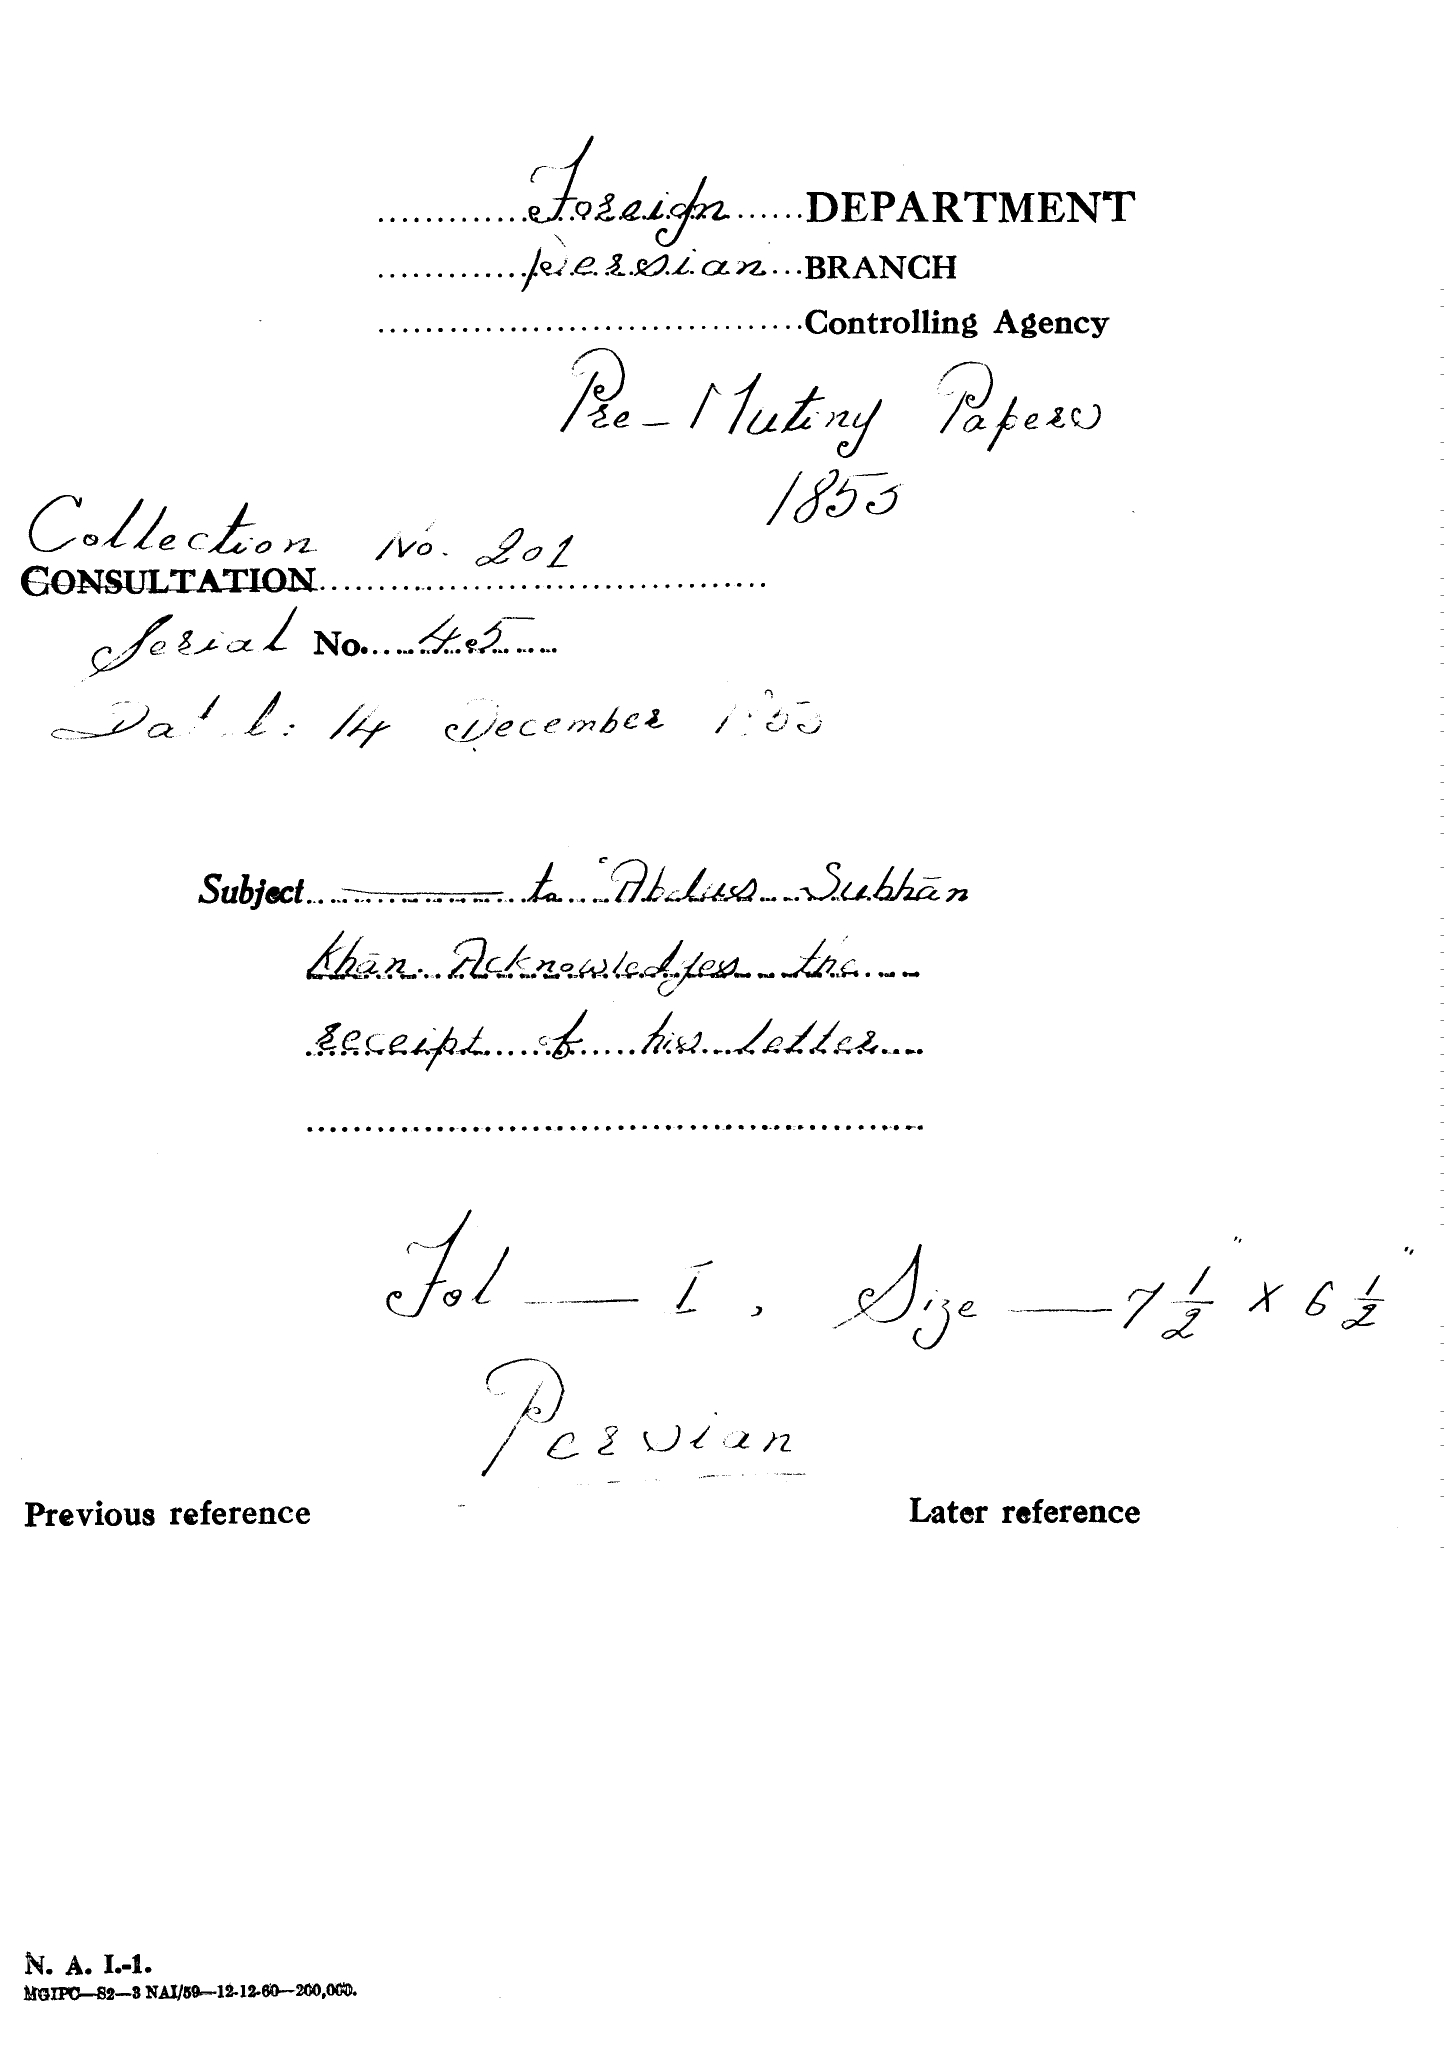 Foreign DEPARTMENT
Persian BRANCH
Controlling Agency
Pre-Mutiny Papers
1853
Collection No. 201
CONSULTATION
Serial No. 45
Dated: 14 December 1853
Subject ——— to 'Abdus Subhān
Khān. Acknowledges the
receipt of his letter
Fol — 1, Size — 7 1/2" × 6 1/2"
Persian
Previous reference
Later reference
N. A. I.-1.
MGIPC—S2—3 NAI/59—12-12-60—200,000.